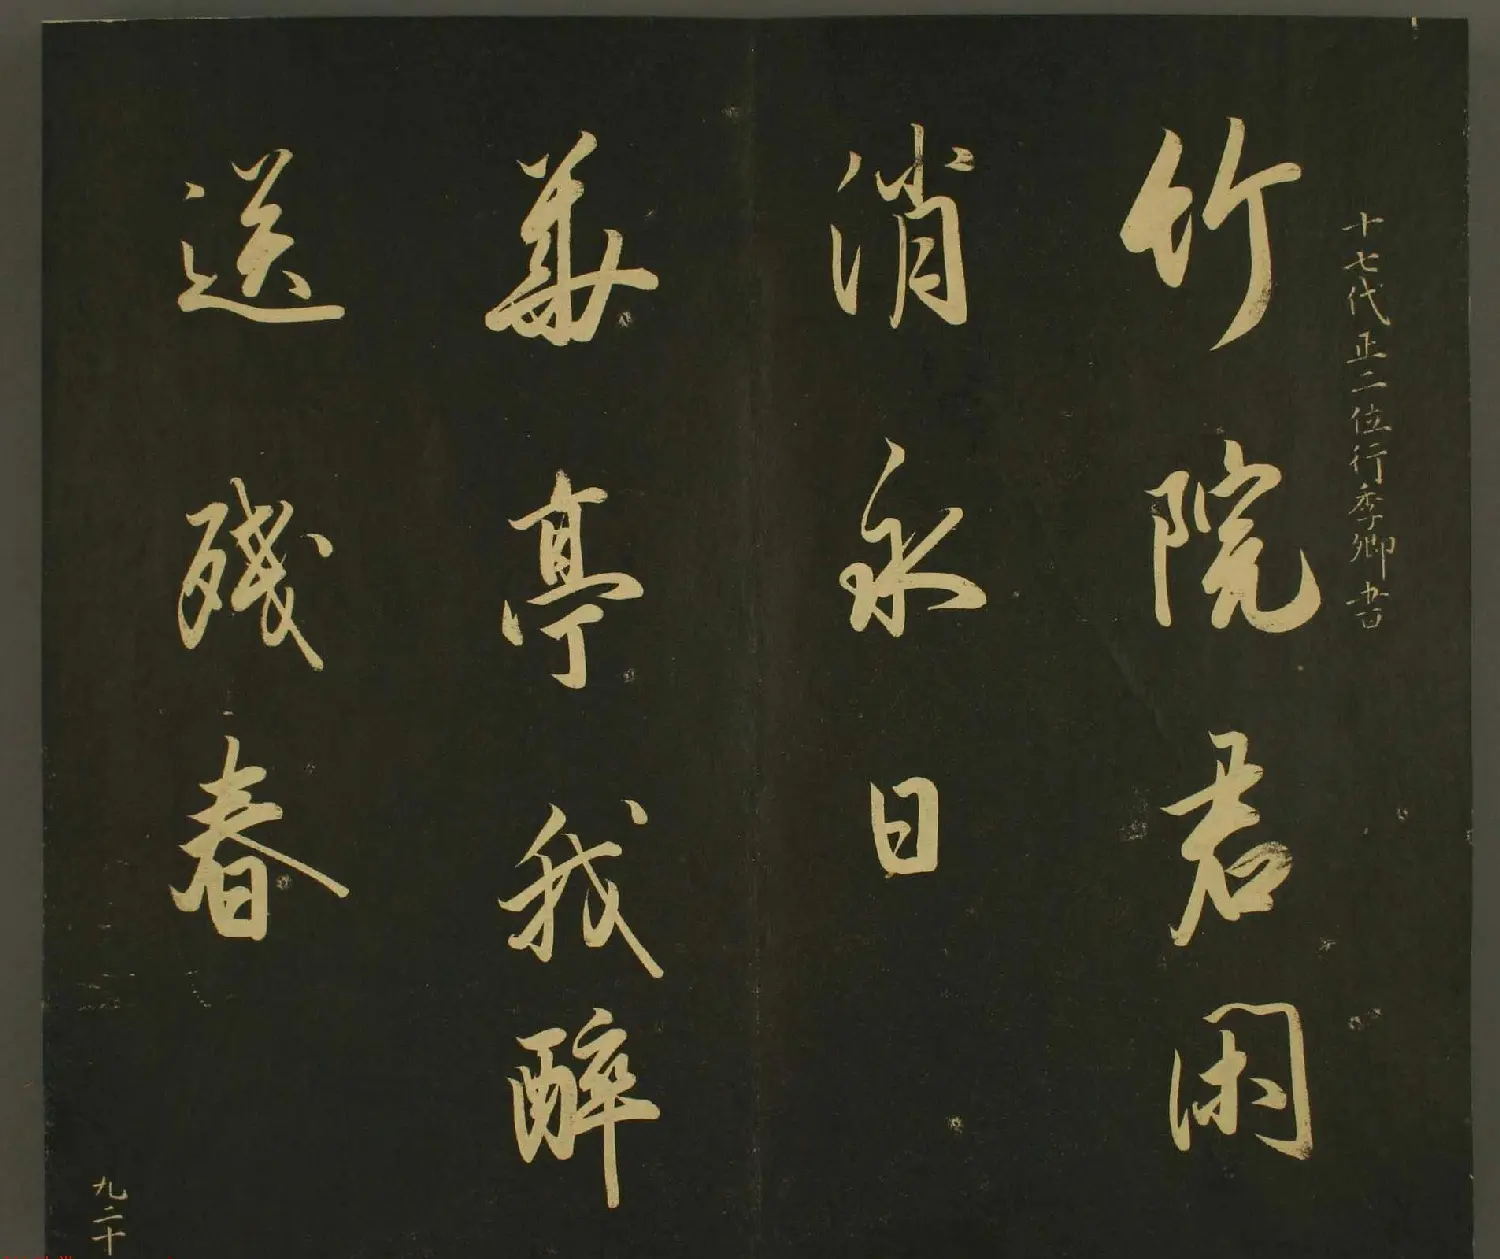 十七代正二位行季卿書
竹院君閑
消永日
華亭我醉
送殘春
九二十